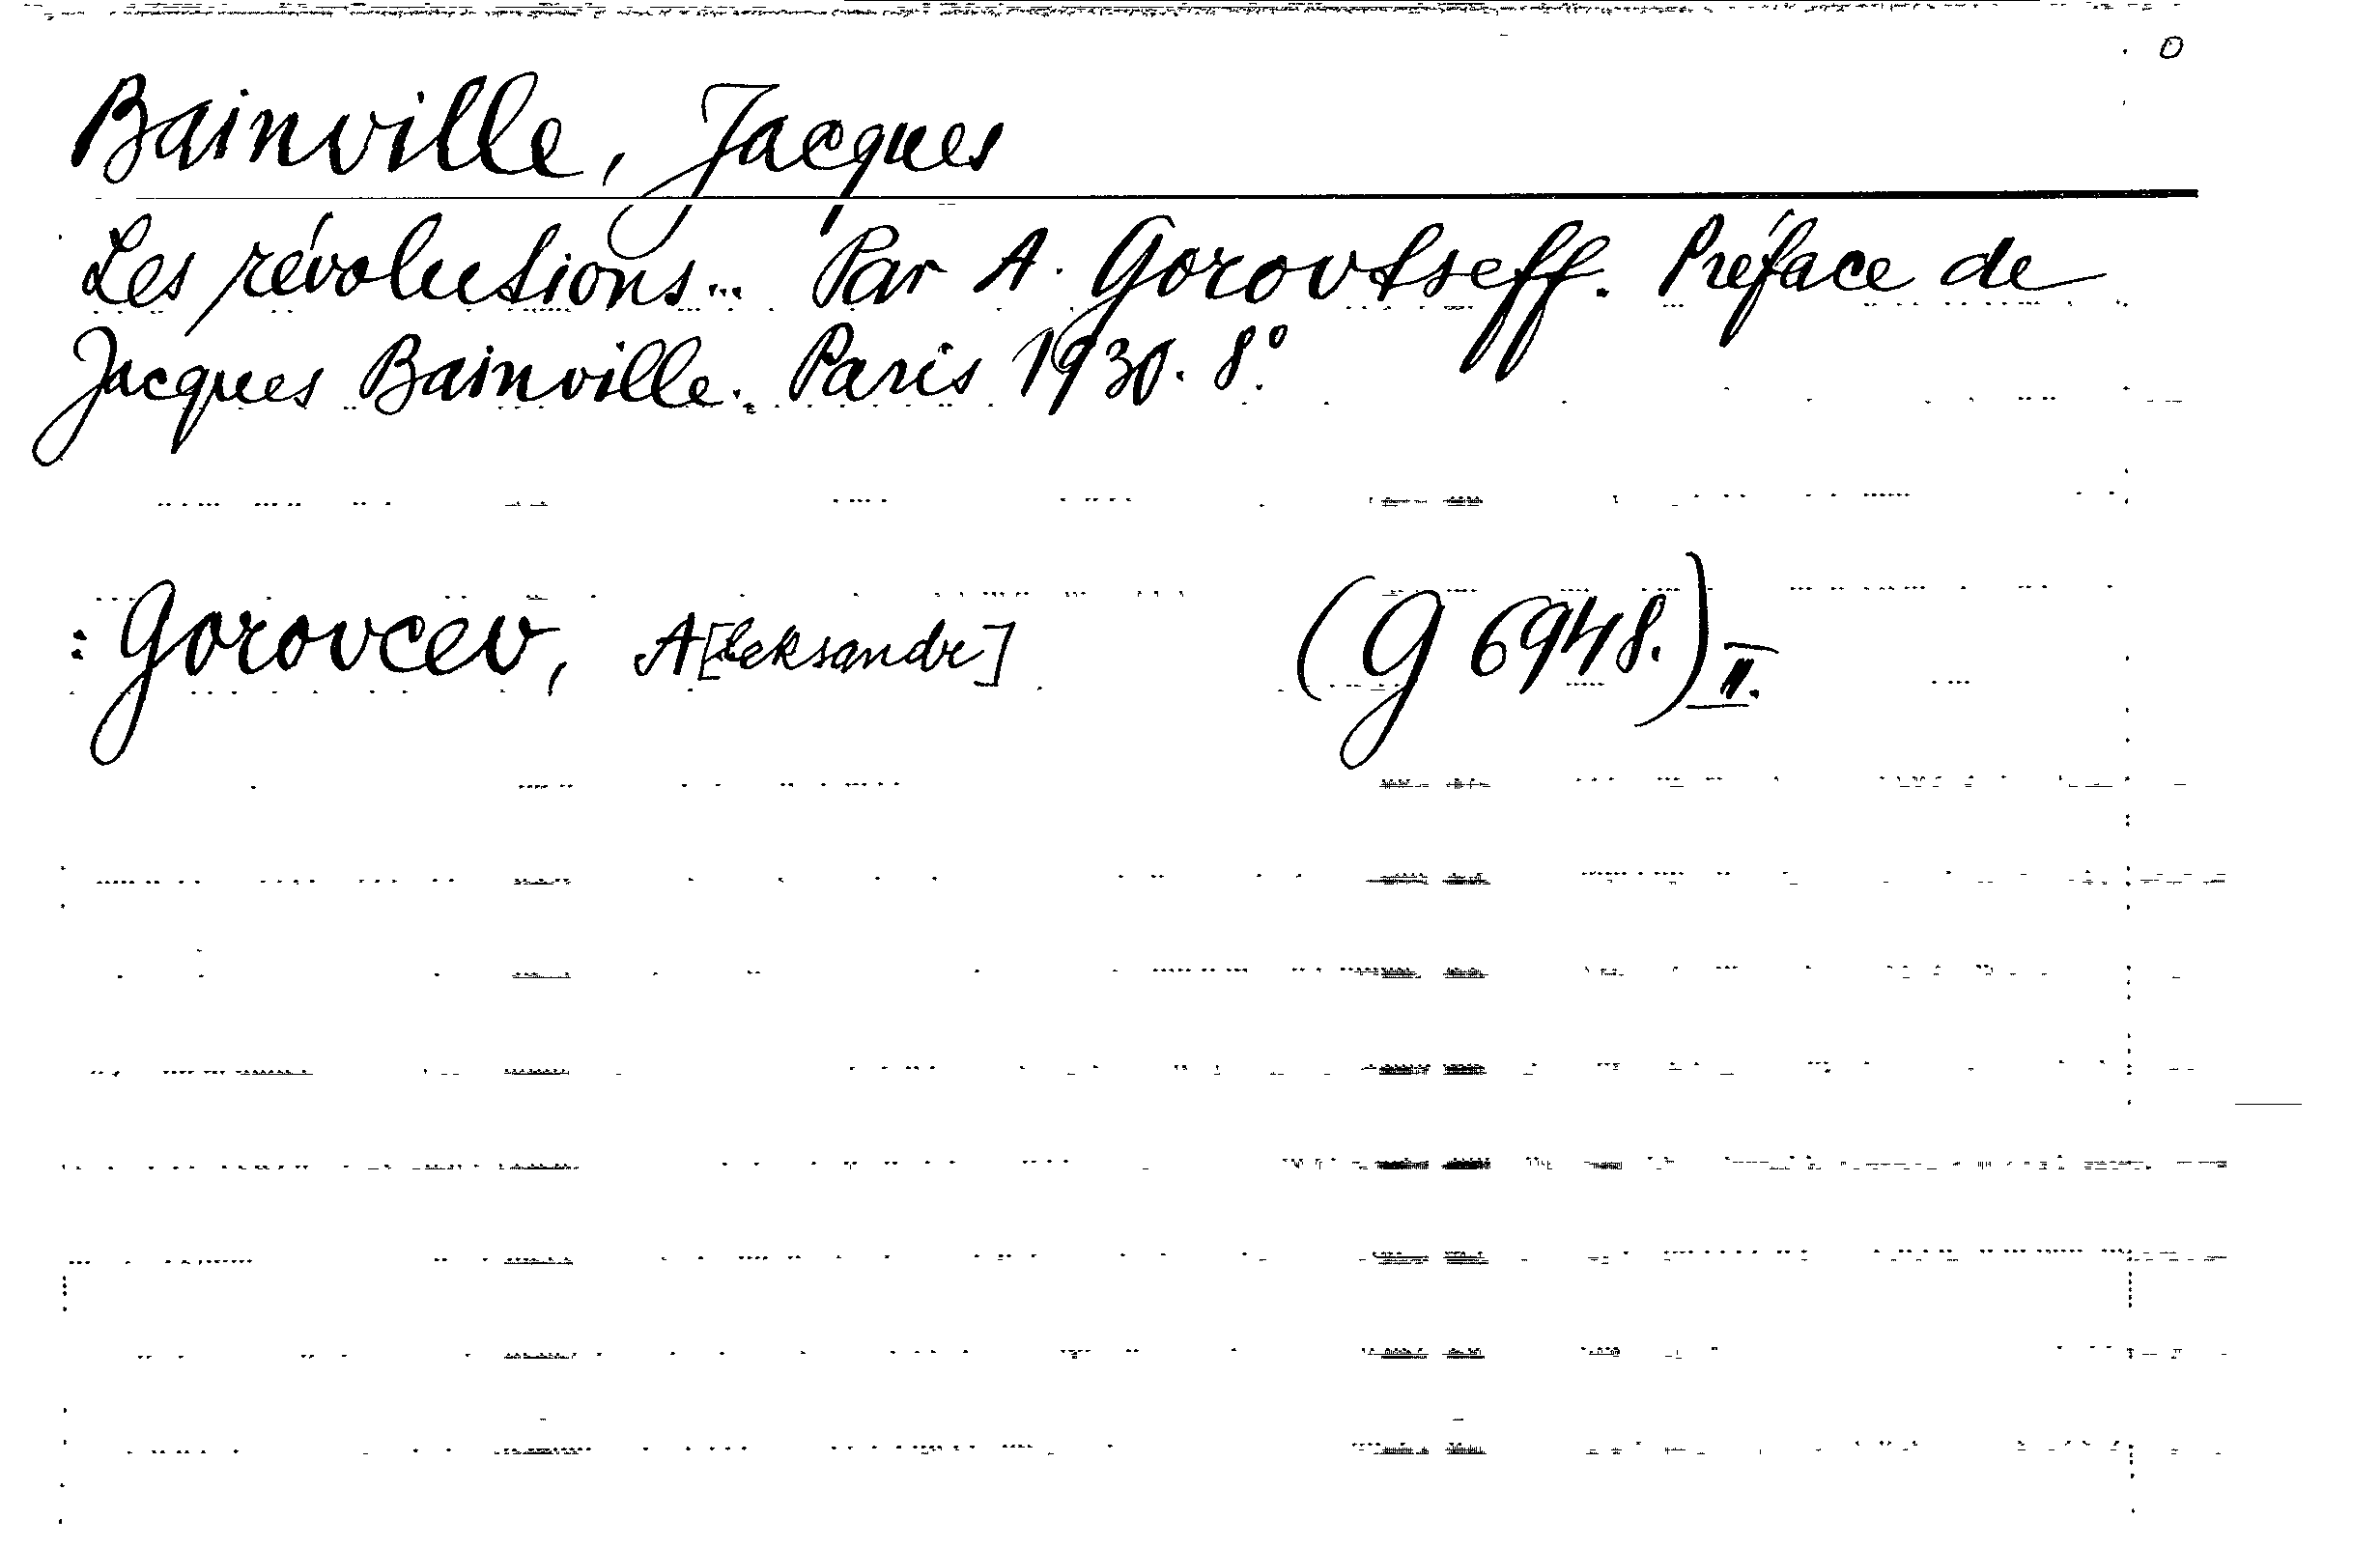 Bainville, Jacques
Les révolutions... Par A. Gorovtseff. Préface de
Jacques Bainville. Paris 1930. 8°.
: Gorovcev, A[leksandr] (G 6948.) II.